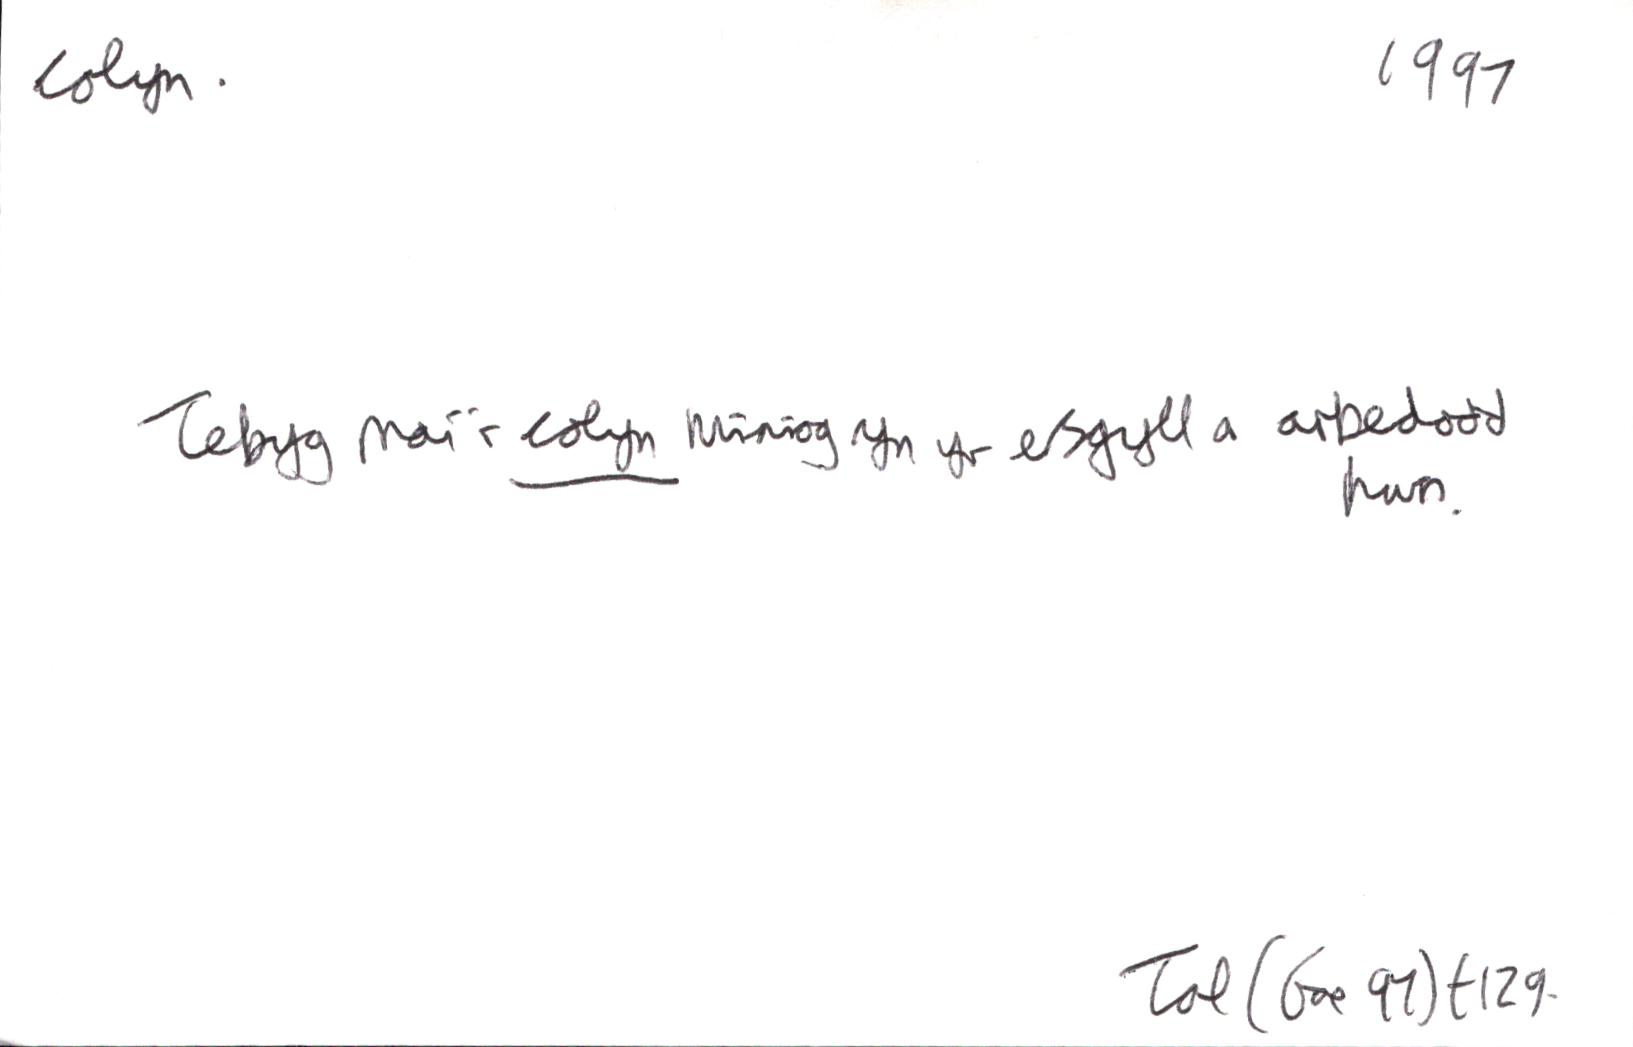 colyn.
1997
Tebyg mai'r colyn miniog yn yr esgyll a arbedodd
hwn.
Tal (Gae 97) t129.